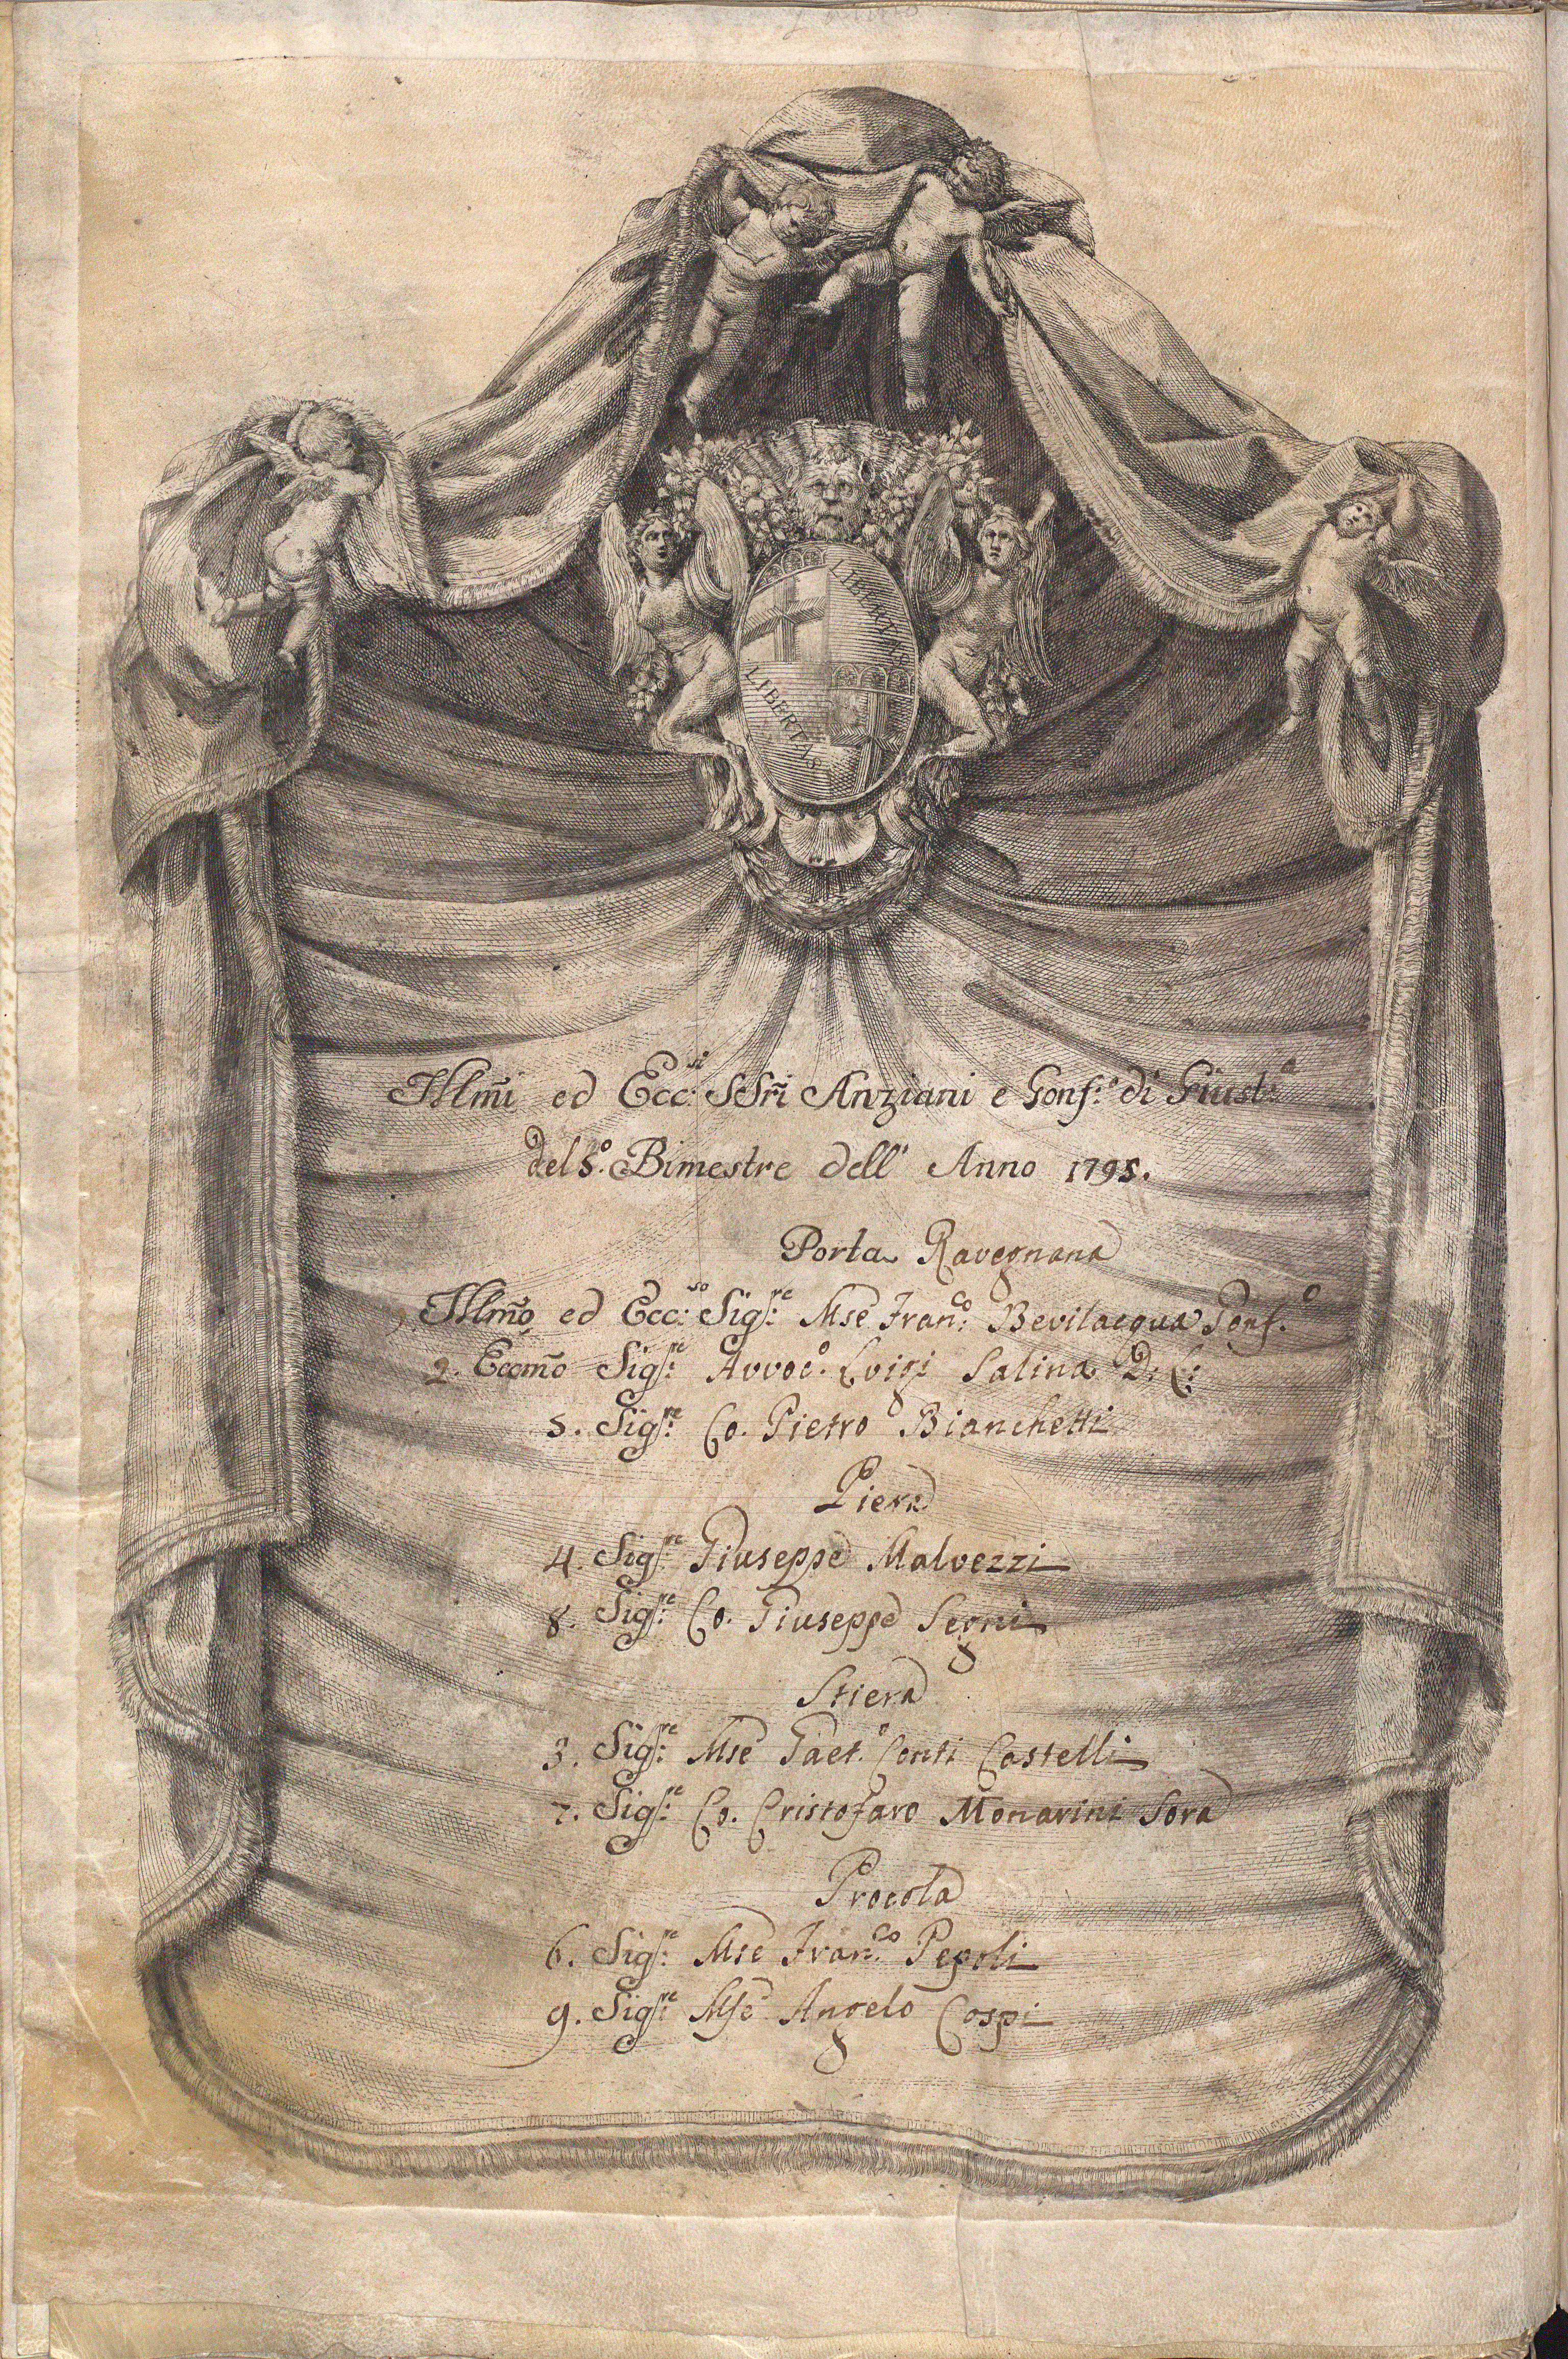 LIBERTAS
LIBERTAS
Illm̃i ed Ecc:si SSri Anziani e Gonf:e di Giust:a
del 5.o Bimestre dell' Anno 1795.
Porta Ravegnana
Illmõ ed Ecc:so Sig:re Mse Fran:co Bevilacqua Gonf.o
2. Eccmõ Sig:re Avvoc.o Luigi Salina D: C:
5. Sig:re Co. Pietro Bianchetti
Piera
4. Sig:re Giuseppe Malvezzi
8. Sig:re Co. Giuseppe Segni
Stiera
3. Sig:re Mse Gaet.o Conti Castelli
7. Sig:re Co. Cristofaro Monarini Sora
Procola
6. Sig:re Mse Fran:co Pepoli
9. Sig:re Mse Angelo Cospi